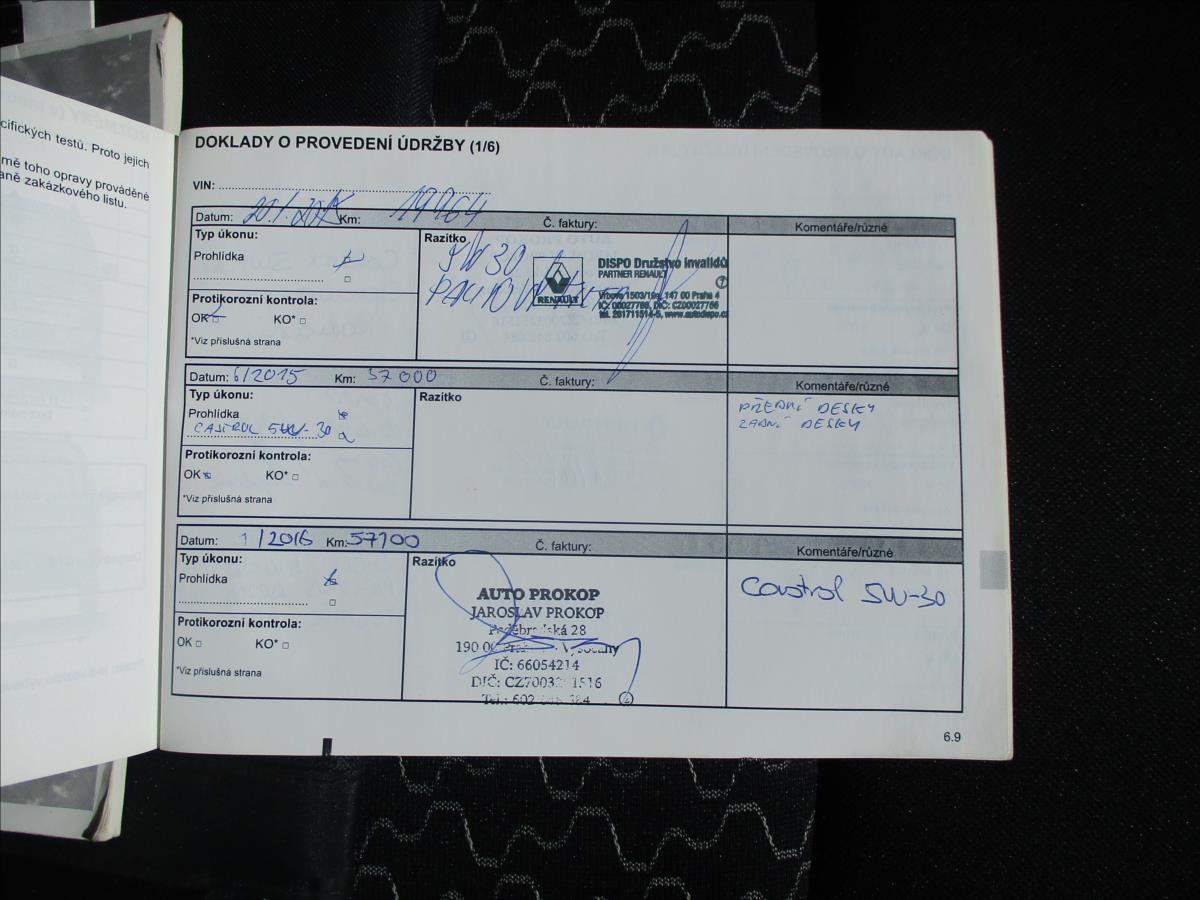 cifických testů. Proto jejich
mě toho opravy prováděné
aně zakázkového listu.
DOKLADY O PROVEDENÍ ÚDRŽBY (1/6)
VIN:
Datum: Km: 19964 Č. faktury: Komentáře/různé
Typ úkonu: Razítko
Prohlídka
5W30
RENAULT
DISPO Družstvo invalidů
PARTNER RENAULT
Vrbova 1503/19a, 147 00 Praha 4
IČ: 00027766, DIČ: CZ00027766
tel. 261711514-5, www.autodispo.cz
Protikorozní kontrola:
OK KO*
*Viz příslušná strana
Datum: 6/2015 Km: 57 000 Č. faktury: Komentáře/různé
Typ úkonu: Razítko
PŘEDNÍ DESKY
ZADNÍ DESKY
Prohlídka
CASTROL 5W-30
Protikorozní kontrola:
OK KO*
*Viz příslušná strana
Datum: 1/2016 Km: 57100 Č. faktury: Komentáře/různé
Typ úkonu: Razítko
Prohlídka
Castrol 5W-30
AUTO PROKOP
JAROSLAV PROKOP
Poděbradská 28
190 00 Vysočany
IČ: 66054214
DIČ: 1516
Tel.: 602
Protikorozní kontrola:
OK KO*
*Viz příslušná strana
6.9